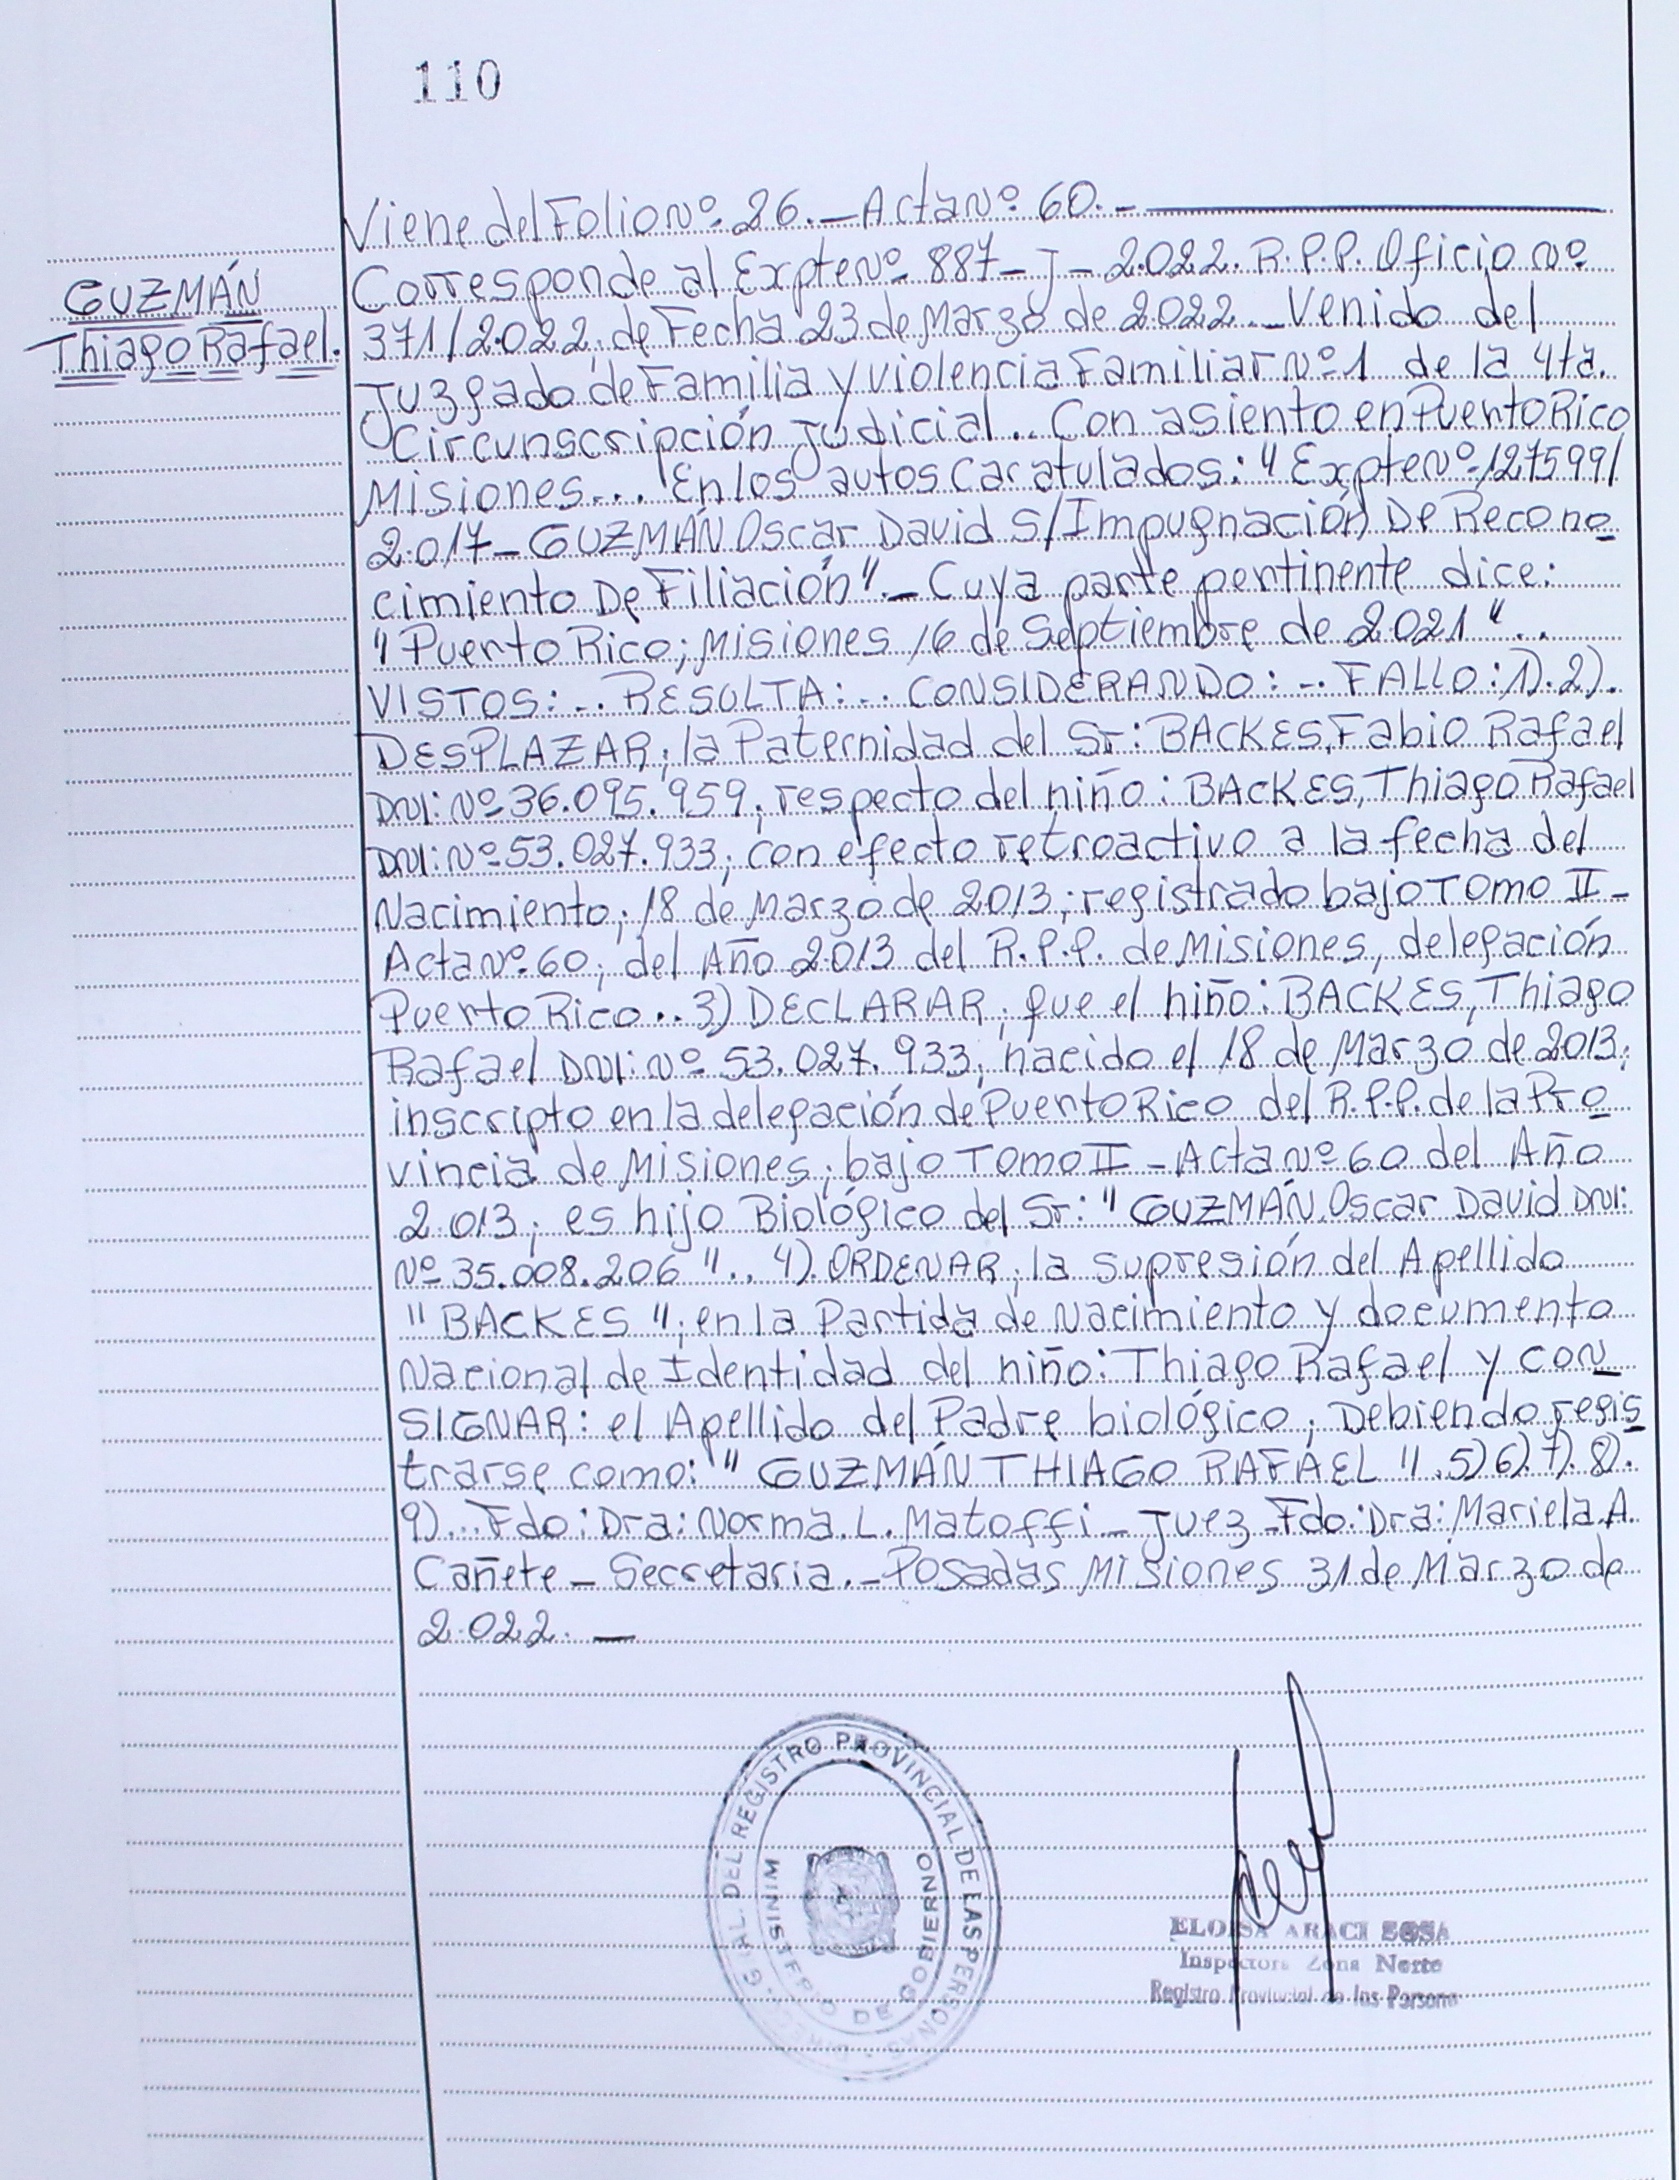 110
Viene del Folio Nº 26. _ Acta Nº 60. _
GUZMÁN
Thiago Rafael.
Corresponde al Expte Nº 887_J_2.022. R.P.P. Oficio Nº
371/2.022, de Fecha 23 de Marzo de 2.022. _ Venido del
Juzgado de Familia y Violencia Familiar Nº 1 de la 4ta.
Circunscripción Judicial... Con asiento en Puerto Rico
Misiones... En los autos Caratulados: "Expte Nº 127599/
2.017_ GUZMÁN Oscar David S/Impugnación De Recono
cimiento De Filiación"._ Cuya parte pertinente dice:
"Puerto Rico; Misiones 16 de Septiembre de 2.021"..
VISTOS: _.. RESULTA: .. CONSIDERANDO: _.. FALLO: 1). 2).
DESPLAZAR; la Paternidad del Sr: BACKES, Fabio Rafael
DNI: Nº 36.095.959; respecto del niño: BACKES, Thiago Rafael
DNI: Nº 53.027.933; con efecto retroactivo a la fecha del
Nacimiento; 18 de Marzo de 2.013; registrado bajo Tomo II_
Acta Nº 60; del Año 2.013 del R.P.P. de Misiones, delegación
Puerto Rico.. 3) DECLARAR; que el niño: BACKES, Thiago
Rafael DNI: Nº 53.027.933; nacido el 18 de Marzo de 2.013;
inscripto en la delegación de Puerto Rico del R.P.P. de la Pro
vincia de Misiones; bajo Tomo II _ Acta Nº 60 del Año
2.013; es hijo Biológico del Sr: "GUZMÁN Oscar David DNI:
Nº 35.008.206".. 4). ORDENAR; la supresión del Apellido
"BACKES"; en la Partida de Nacimiento y documento
Nacional de Identidad del niño: Thiago Rafael y CON
SIGNAR: el Apellido del Padre biológico; Debiendo regis
trarse como: "GUZMÁN THIAGO RAFAEL". 5) 6). 7). 8).
9)... Fdo: Dra: Norma. L. Matoffi _ Juez _ Fdo: Dra: Mariela. A.
Cañete _ Secretaria. _ Posadas Misiones 31 de Marzo de
2.022. _
GRAL. DEL REGISTRO PROVINCIAL DE LAS PERSONAS
MINISTERIO DE GOBIERNO
ELOISA ARACI SOSA
Inspectora Zona Norte
Registro Provincial de las Persona